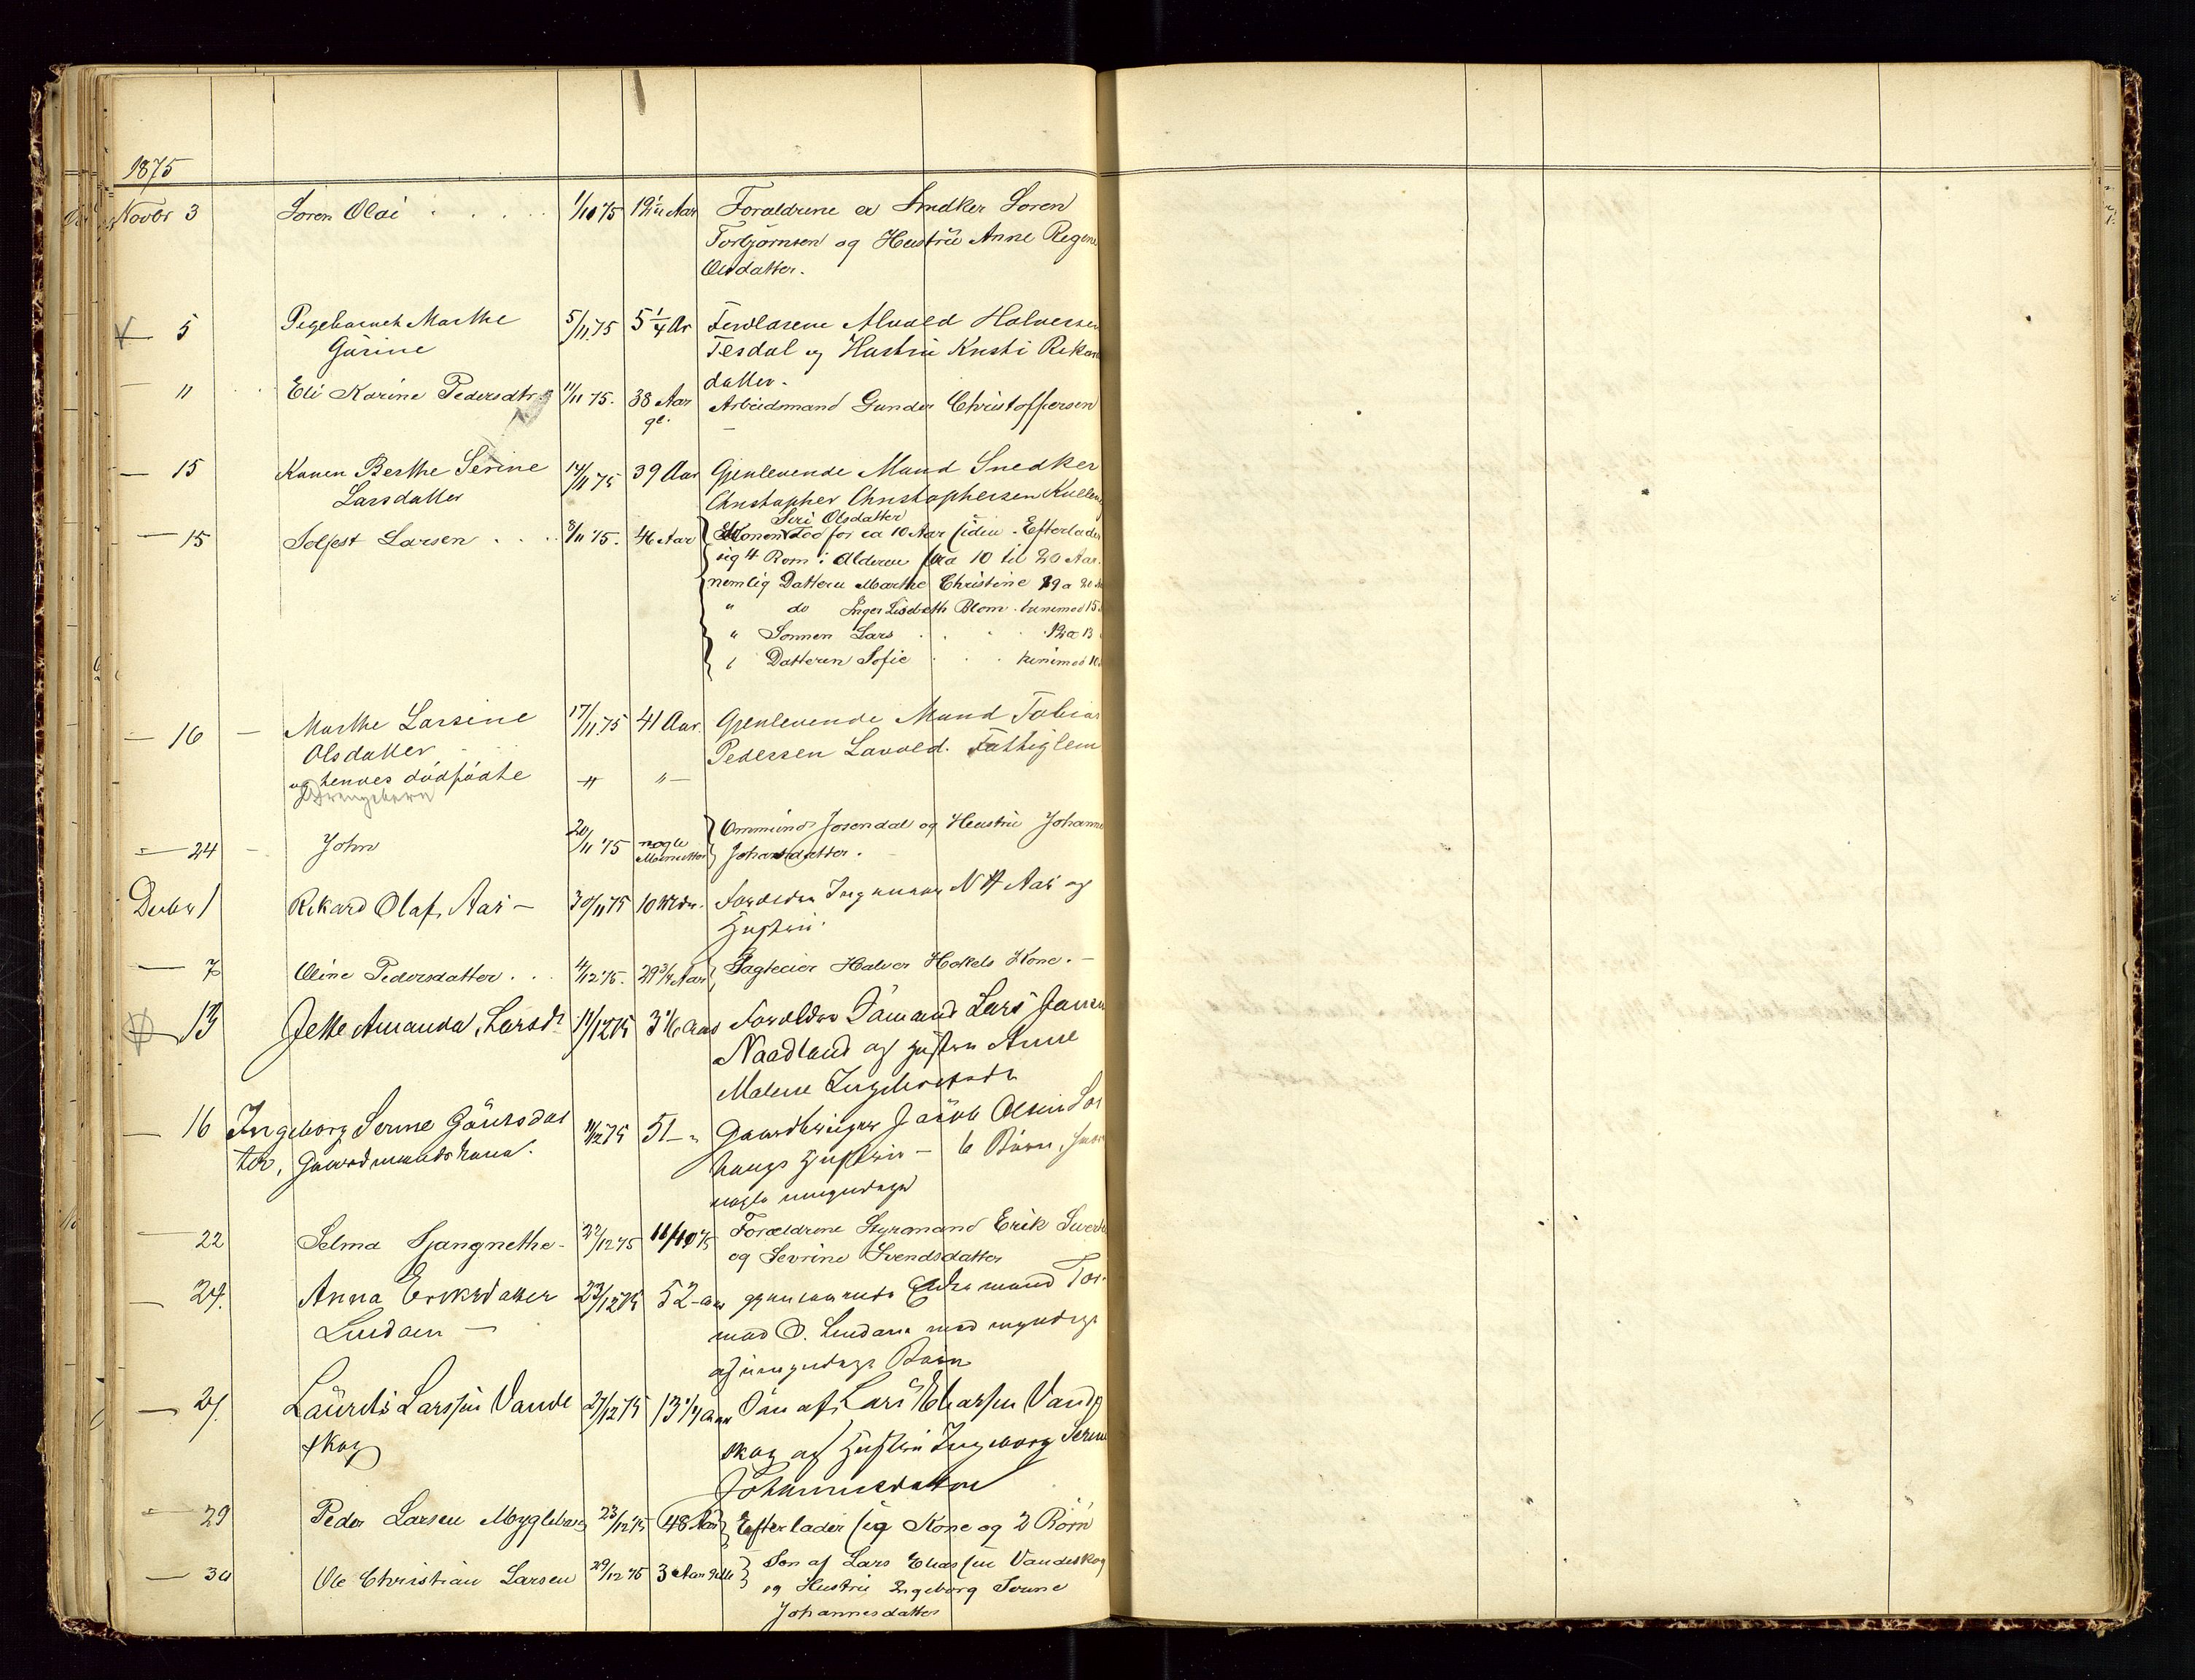 1875
Novbr 3 Soren Olai 1/10 75 12 Aar Foraldrene er Snedker Soren
Torbjørnsen og Hustrü Anne Regine
Olsdatter.
5 Pigebarnet Marthe 5/11 75 5 1/4 Ar Alvald Halversen
Gürine Tesdal og Hustrü Kristi Rekars
datter.
11 Eli Karine Pedersdtr 11/11 75. 38 Aar Arbeidsmand Gunder Christoffersen
gl.
15 Konen Berthe Serine 14/11 75 39 Aar Gjenlevende Mand Snedker
Larsdatter Christopher Christophersen
Siri Olsdatter
15 Solfest Larsen 8/11 75. 46 Aar Konen død for ca 10 Aar siden. Efterlader
sig 4 Born i Alderen fra 10 til 20 Aar.
nemlig Datteren Marthe Christine 19 a 20
" do Inger Lisebeth Blom henimod 15
" Sønnen Lars 12 a 13
" Datteren Sofie henimod 10
16 Marthe Larsine 17/11 75 41 Aar. Gjenlevende Mand Tobias
Olsdatter Pedersen Lavold. Fattiglem
og hendes dødfødte " "
Drengebarn
24 John 20/11 75 nogle Ommund Josendal og Hustrü Johanne
Maaneder Johansdatter.
Decbr 1 Rikard Olaf Aas 30/11 75 10 Mdr. Foreldre N A Aas og
Hustrü.
7 Oline Pedersdatter 4/12 75. 29 3/4 Aar Halvor Hokels Kone.
13 Jette Amanda Larsdr 11/12 75 3 1/6 Aar Foreldre Sömand Lars Jansen
Naadland og Hustrü Anne
Malene
16 Ingeborg Serine Göürsdat 11/12 75 51 " Gaardbruger Jacob Olsen
ter, Gaardmandskone. Hustrü - 6 Börn,
nogle umyndige
22 Selma Sjangnethe 22/12 75 Forældrene Styrmand Erik
og Sevrine Svendsdatter
24. Anna Eriksdatter 23/12 75 52 aar gjenlevende Enkemand Tor
Lindaen mod O. Lindaen med myndige
og umyndige Börn
27. Laürits Larssen Vande 27/12 75 13 1/4 aar Sön af Lars Eliassen Vande
skog skog og Hustrü Ingeborg Serine
Johannesdatter
29 Peder Larsen Myglebust 23/12 75 48 Aar Efterlader sig Kone og 2 Börn
30 Ole Christian Larsen 29/12 75 3 Aar Søn af Lars Eliassen Vandeskog
og Hustrü Ingeborg Serine
Johannesdatter